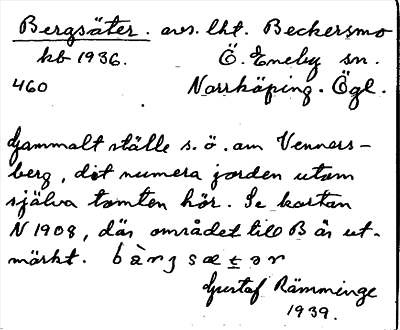 Bergsäter. avs. lht. Beckersmo
kb 1936. Ö. Eneby sn.
460 Norrköping. Ögl.
Gammalt ställe s.ö. om Venners-
berg, dit numera jorden utom
själva tomten hör. Se kartan
N 1908, där området till B är ut-
märkt. bærgsætər
Gustaf Rämminge
1939.